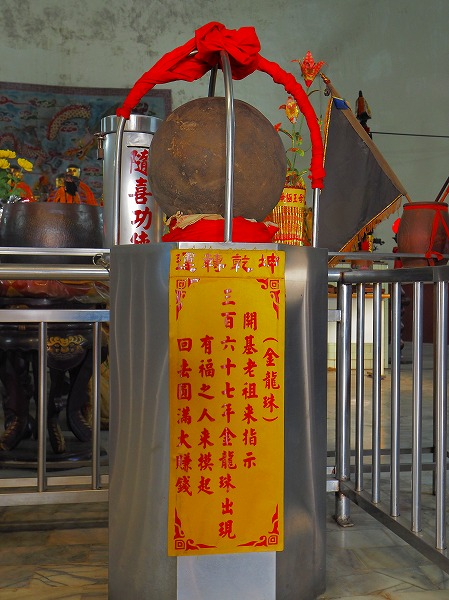 轉乾坤
(金龍珠)
開基老祖來指示
三百六十七年金龍珠出現
有福之人來摸起
回去圓滿大賺錢
隨喜功